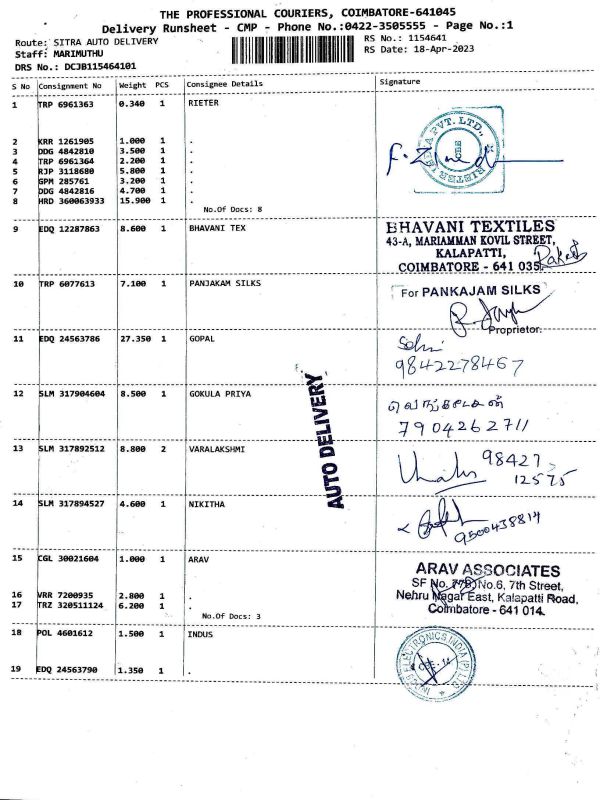 THE PROFESSIONAL COURIERS, COIMBATORE-641045
Delivery Runsheet - CMP - Phone No.:0422-3505555 - Page No.:1
Route: SITRA AUTO DELIVERY
RS No.: 1154641
Staff: MARIMUTHU
RS Date: 18-Apr-2023
DRS No.: DCJB115464101
S No Consignment No Weight PCS Consignee Details Signature
1 TRP 6961363 0.340 1 RIETER
2 KRR 1261905 1.000 1 .
3 DDG 4842810 3.500 1 .
4 TRP 6961364 2.200 1 .
5 RJP 3118680 5.800 1 .
6 GPM 285761 3.200 1 .
7 DDG 4842816 4.700 1 .
8 HRD 360063933 15.900 1 .
No.Of Docs: 8
9 EDQ 12287863 8.600 1 BHAVANI TEX
BHAVANI TEXTILES
43-A, MARIAMMAN KOVIL STREET,
KALAPATTI,
COIMBATORE - 641 035.
10 TRP 6077613 7.100 1 PANJAKAM SILKS
For PANKAJAM SILKS
Proprietor.
11 EDQ 24563786 27.350 1 GOPAL
9842278467
12 SLM 317904604 8.500 1 GOKULA PRIYA
7904262711
13 SLM 317892512 8.800 2 VARALAKSHMI
98427
12575
14 SLM 317894527 4.600 1 NIKITHA
9500438814
AUTO DELIVERY
15 CGL 30021604 1.000 1 ARAV
16 VRR 7200935 2.800 1 .
17 TRZ 320511124 6.200 1 .
No.Of Docs: 3
ARAV ASSOCIATES
SF No. 778, No.6, 7th Street,
Nehru Nagar East, Kalapatti Road,
Coimbatore - 641 014.
18 POL 4601612 1.500 1 INDUS
19 EDQ 24563790 1.350 1 .